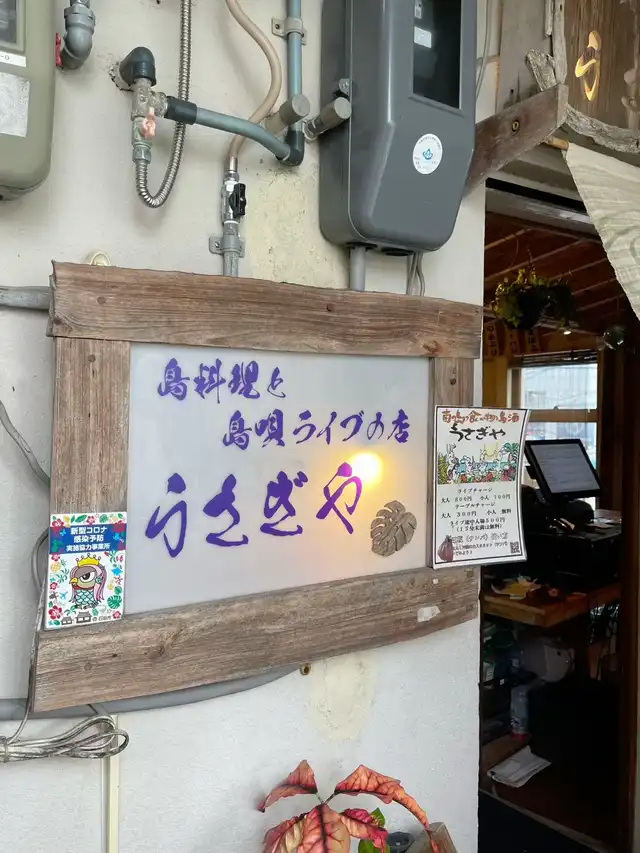 う
島料理と
島唄ライブの店
うさぎや
南の島の食べ物と島酒
うさぎや
ライブチャージ
大人 800円 小人 500円
テーブルチャージ
大人 300円 小人 無料
新型コロナ
感染予防
実施協力事業所
石垣市